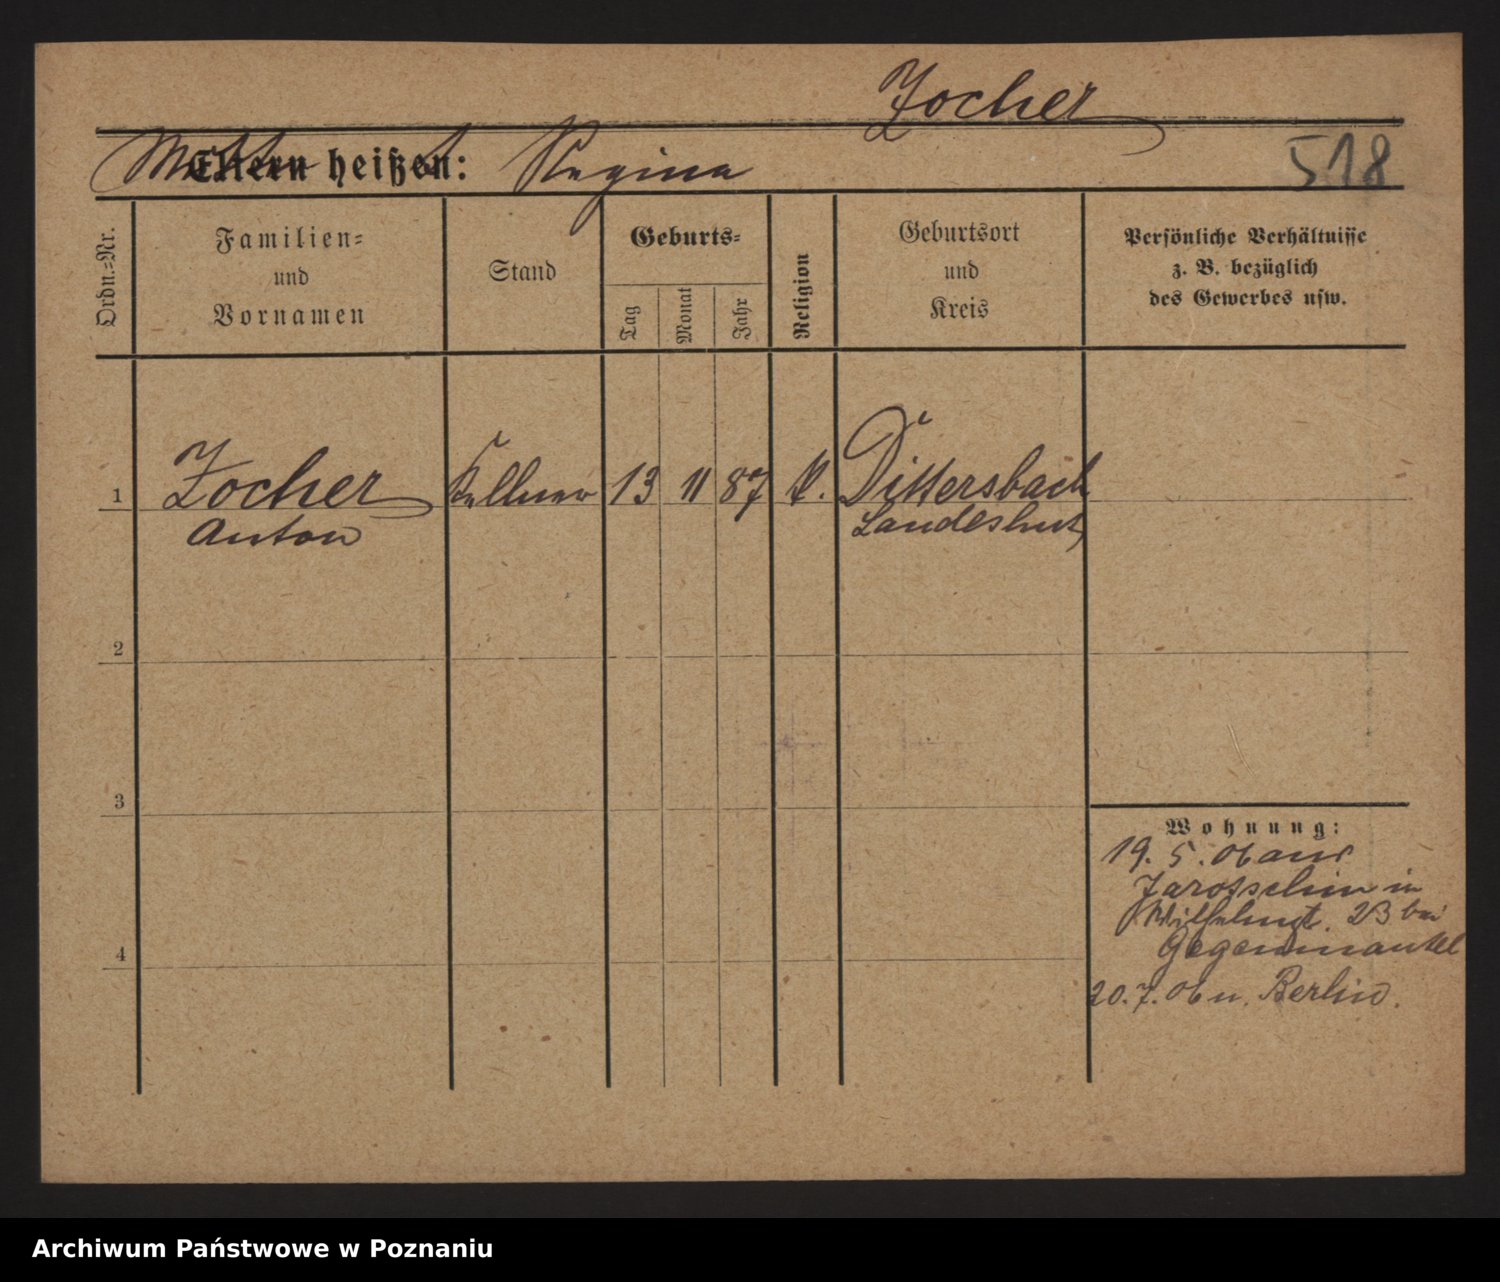 Zocher
Mutter
Eltern heißen: Regina
518
Ordn.=Nr.
Familien=
und
Vornamen
Stand
Geburts=
Tag
Monat
Jahr
Religion
Geburtsort
und
Kreis
Persönliche Verhältnisse
z. B. bezüglich
des Gewerbes usw.
1 Zocher Kellner 13 11 87 k. Dittersbach
Anton Landeshut
2
3
4
Wohnung:
19. 5. 06 aus
Jarotschin in
Wilhelmst. 23 bei
Gegenmantel
20. 7. 06 n. Berlin.
Archiwum Państwowe w Poznaniu